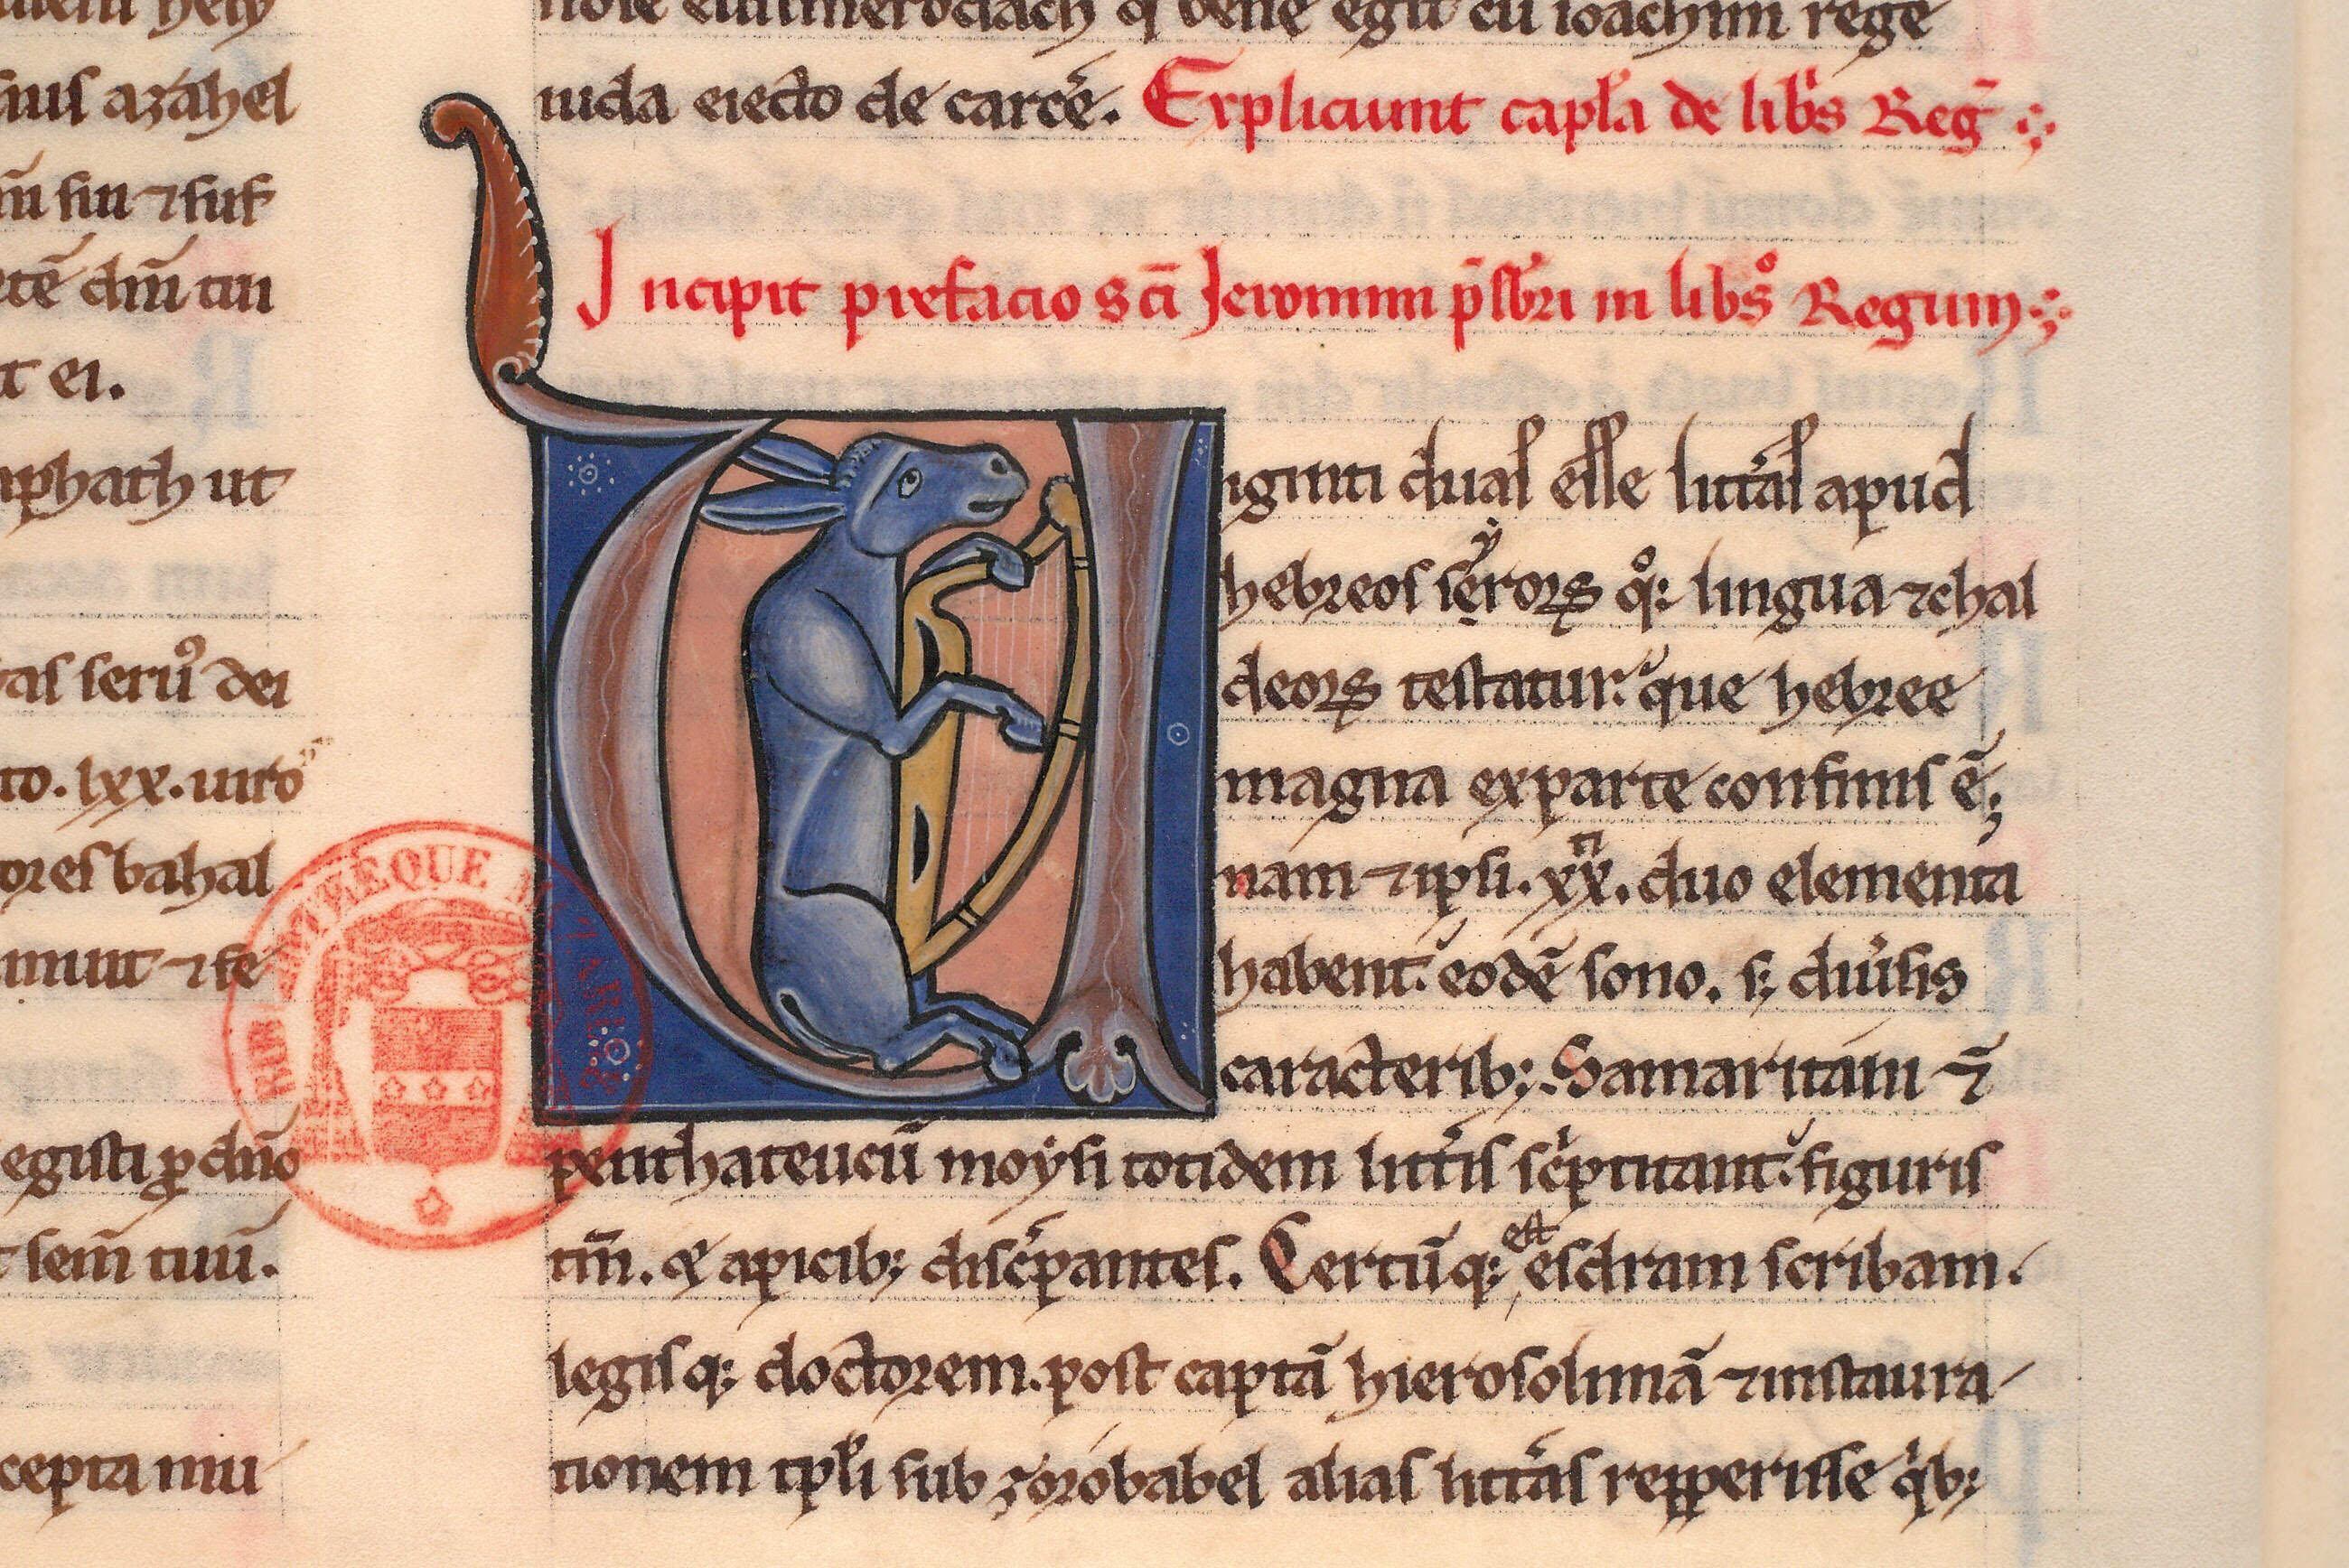 sius azahel
m̄ siu ⁊ suſ
dm̄ tui
t ei.
ut
seruꝰ dei
to. lxx. uiro
ores bahal
egisti ꝓ dn̄o
sem̄ tuū.
cepta mu
uilmerodach q̄ bene egit cū ioachim rege
iuda eiecto de carcē. Expliciunt capl̓a de lib̓s Reg̅
Incipit prefacio sc̄i Jeronimi p̄sbr̄i in libͦs Regum
Viginti duas esse litt̓as apud
hebreos syroꝝ qͦꝫ lingua ⁊ chal
deoꝝ testatur. que hebree
magna ex parte confinis ē;
nam ⁊ ipsi .xxͭⁱ. duo elementa
habent. eodē sono. sꝫ diu̓sis
caracteribꝫ. Samaritani ⁊̄
penthateucū moẏsi totidem litt̓is sc̓ptitant. figuris
tm̄. & apicibꝫ disc̓pantes. Certūqꝫ est esdram scribam.
legisqꝫ doctorem. post captā hierosolimā ⁊ instaura
tionem tpl̓i sub zorobabel alias litt̓as repperisse qͥbꝫ
BIBLIOTHEQUE MAZARINE